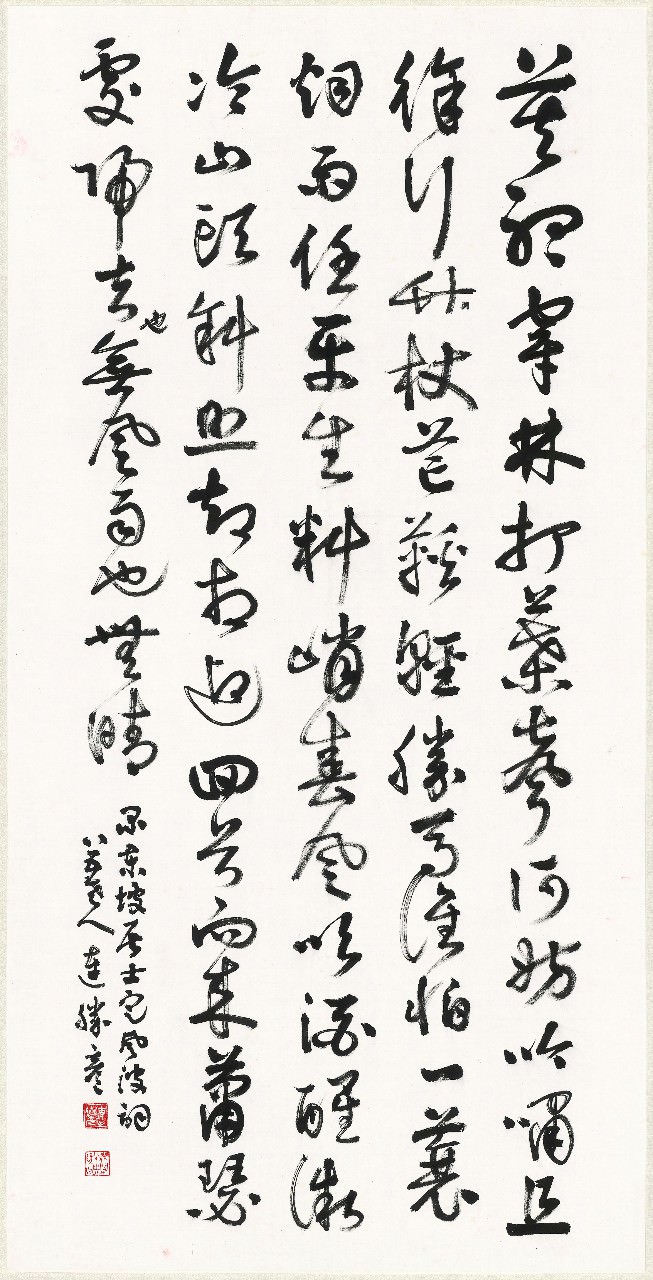 莫聽穿林打葉聲何妨吟嘯且
徐行竹杖芒鞋輕勝馬誰怕一蓑
烟雨任平生料峭春風吹酒醒微
冷山頭斜照却相迎回首向来蕭瑟
處歸去也無風雨也無晴
東坡居士定風波詞
八五老人連勝彥